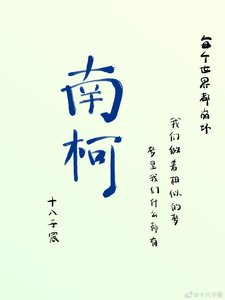 每个世界都崩坏
我们做着相似的梦
梦里我们什么都有
南柯
十八子宸
@十八子宸